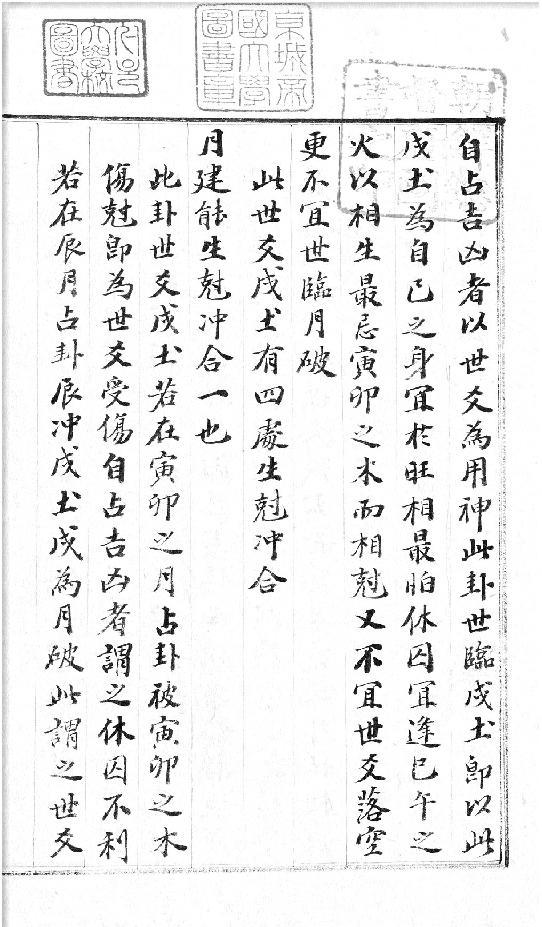 自占吉凶者以世爻為用神此卦世臨戌土卽以此
戌土為自己之身宜於旺相最怕休囚宜逢巳午之
火以相生最忌寅卯之木而相尅又不冝世爻落空
更不冝世臨月破
此世爻戌土有四處生尅冲合
月建能生尅冲合一也
此卦世爻戌土若在寅卯之月占卦被寅卯之木
傷尅卽為世爻受傷自占吉凶者謂之休囚不利
若在辰月占卦辰冲戌土戌為月破此謂之世爻
京城帝國大學圖書章
大學校圖書